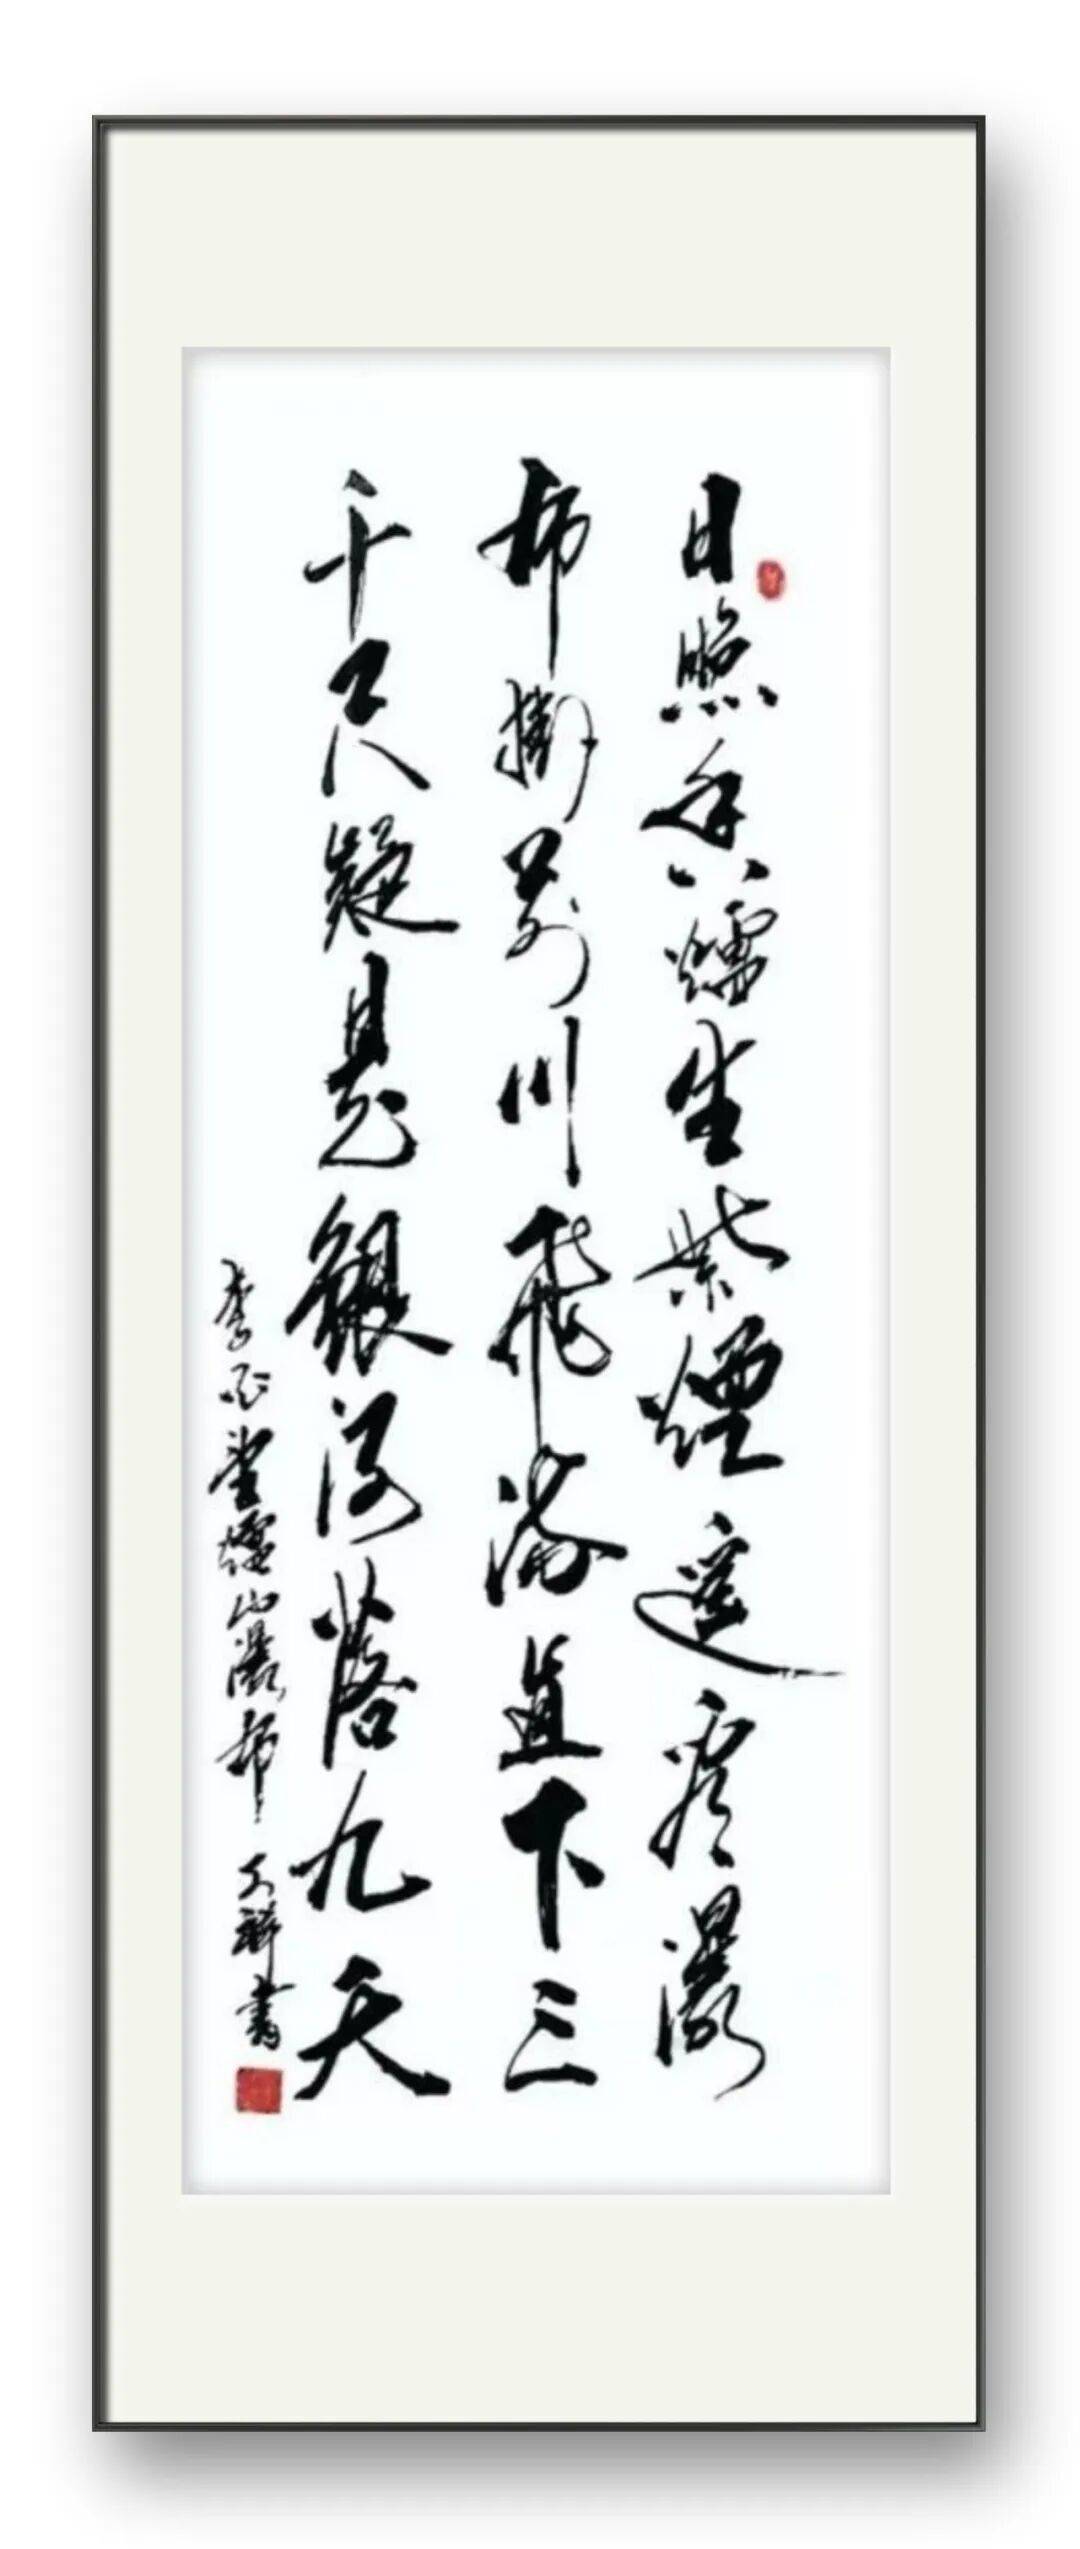 日照香爐生紫煙遙看瀑
布掛前川飛流直下三
千尺疑是銀河落九天
李白望廬山瀑布 祥書